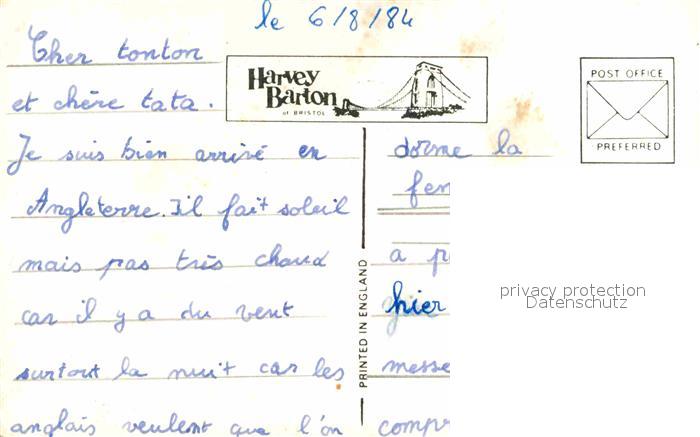 le 6/8/84
Cher tonton
et chère tata.
Je suis bien arrivé en
Angleterre. Il fait soleil
mais pas très chaud
car il y a du vent
surtout la nuit car les
anglais veulent que l'on
Harvey
Barton
of BRISTOL
POST OFFICE
PREFERRED
PRINTED IN ENGLAND
dorme la
fen
a p
hier
messe
compr
privacy protection
Datenschutz